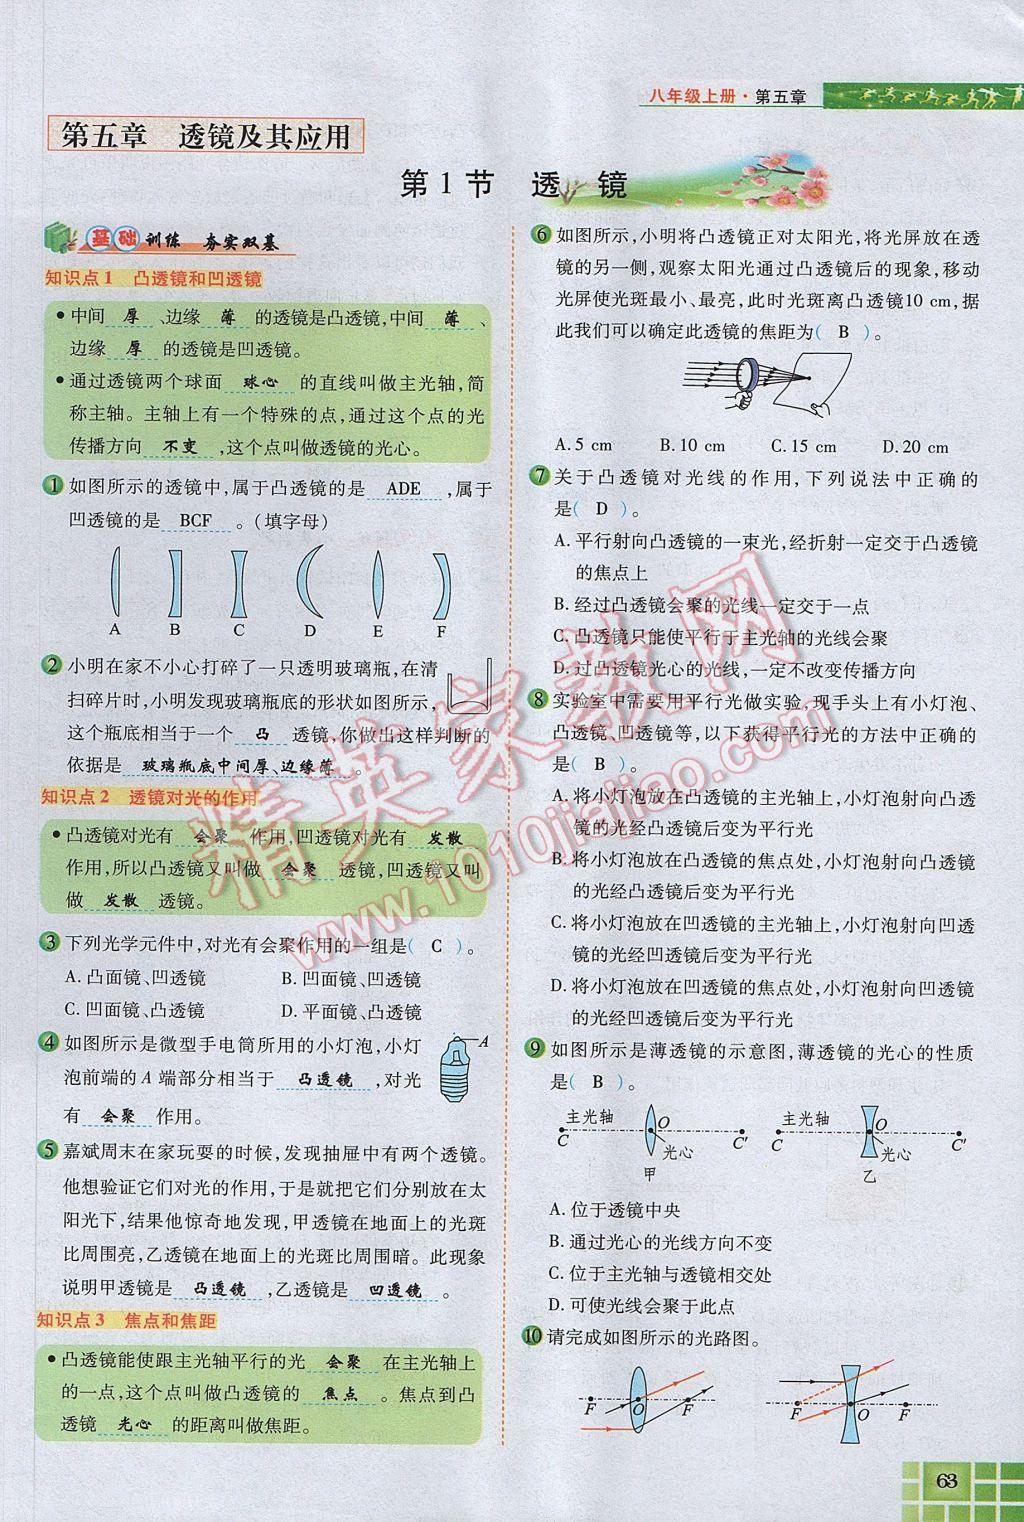 八年级上册·第五章
第五章 透镜及其应用
第1节 透 镜
基础训练 夯实双基
知识点1 凸透镜和凹透镜
●中间 厚 、边缘 薄 的透镜是凸透镜,中间 薄 、
边缘 厚 的透镜是凹透镜。
●通过透镜两个球面 球心 的直线叫做主光轴,简
称主轴。主轴上有一个特殊的点,通过这个点的光
传播方向 不变 ,这个点叫做透镜的光心。
1 如图所示的透镜中,属于凸透镜的是 ADE ,属于
凹透镜的是 BCF 。(填字母)
A B C D E F
2 小明在家不小心打碎了一只透明玻璃瓶,在清
扫碎片时,小明发现玻璃瓶底的形状如图所示,
这个瓶底相当于一个 凸 透镜,你做出这样判断的
依据是 玻璃瓶底中间厚、边缘薄 。
知识点2 透镜对光的作用
●凸透镜对光有 会聚 作用,凹透镜对光有 发散
作用,所以凸透镜又叫做 会聚 透镜,凹透镜又叫
做 发散 透镜。
3 下列光学元件中,对光有会聚作用的一组是( C )。
A. 凸面镜、凹透镜 B. 凹面镜、凹透镜
C. 凹面镜、凸透镜 D. 平面镜、凸透镜
4 如图所示是微型手电筒所用的小灯泡,小灯
泡前端的 A 端部分相当于 凸透镜 ,对光
有 会聚 作用。
A
5 嘉斌周末在家玩耍的时候,发现抽屉中有两个透镜。
他想验证它们对光的作用,于是就把它们分别放在太
阳光下,结果他惊奇地发现,甲透镜在地面上的光斑
比周围亮,乙透镜在地面上的光斑比周围暗。此现象
说明甲透镜是 凸透镜 ,乙透镜是 凹透镜 。
知识点3 焦点和焦距
●凸透镜能使跟主光轴平行的光 会聚 在主光轴上
的一点,这个点叫做凸透镜的 焦点 。焦点到凸
透镜 光心 的距离叫做焦距。
6 如图所示,小明将凸透镜正对太阳光,将光屏放在透
镜的另一侧,观察太阳光通过凸透镜后的现象,移动
光屏使光斑最小、最亮,此时光斑离凸透镜10 cm,据
此我们可以确定此透镜的焦距为( B )。
A. 5 cm B. 10 cm C. 15 cm D. 20 cm
7 关于凸透镜对光线的作用,下列说法中正确的
是( D )。
A. 平行射向凸透镜的一束光,经折射一定交于凸透镜
的焦点上
B. 经过凸透镜会聚的光线一定交于一点
C. 凸透镜只能使平行于主光轴的光线会聚
D. 过凸透镜光心的光线,一定不改变传播方向
8 实验室中需要用平行光做实验,现手头上有小灯泡、
凸透镜、凹透镜等,以下获得平行光的方法中正确的
是( B )。
A. 将小灯泡放在凸透镜的主光轴上,小灯泡射向凸透
镜的光经凸透镜后变为平行光
B. 将小灯泡放在凸透镜的焦点处,小灯泡射向凸透镜
的光经凸透镜后变为平行光
C. 将小灯泡放在凹透镜的主光轴上,小灯泡射向凹透
镜的光经凹透镜后变为平行光
D. 将小灯泡放在凹透镜的焦点处,小灯泡射向凹透镜
的光经凹透镜后变为平行光
9 如图所示是薄透镜的示意图,薄透镜的光心的性质
是( B )。
主光轴 O 主光轴 O
C C′ C C′
光心 光心
甲 乙
A. 位于透镜中央
B. 通过光心的光线方向不变
C. 位于主光轴与透镜相交处
D. 可使光线会聚于此点
10 请完成如图所示的光路图。
F O F F O F
63
精英家教网
www.1010jiajiao.com